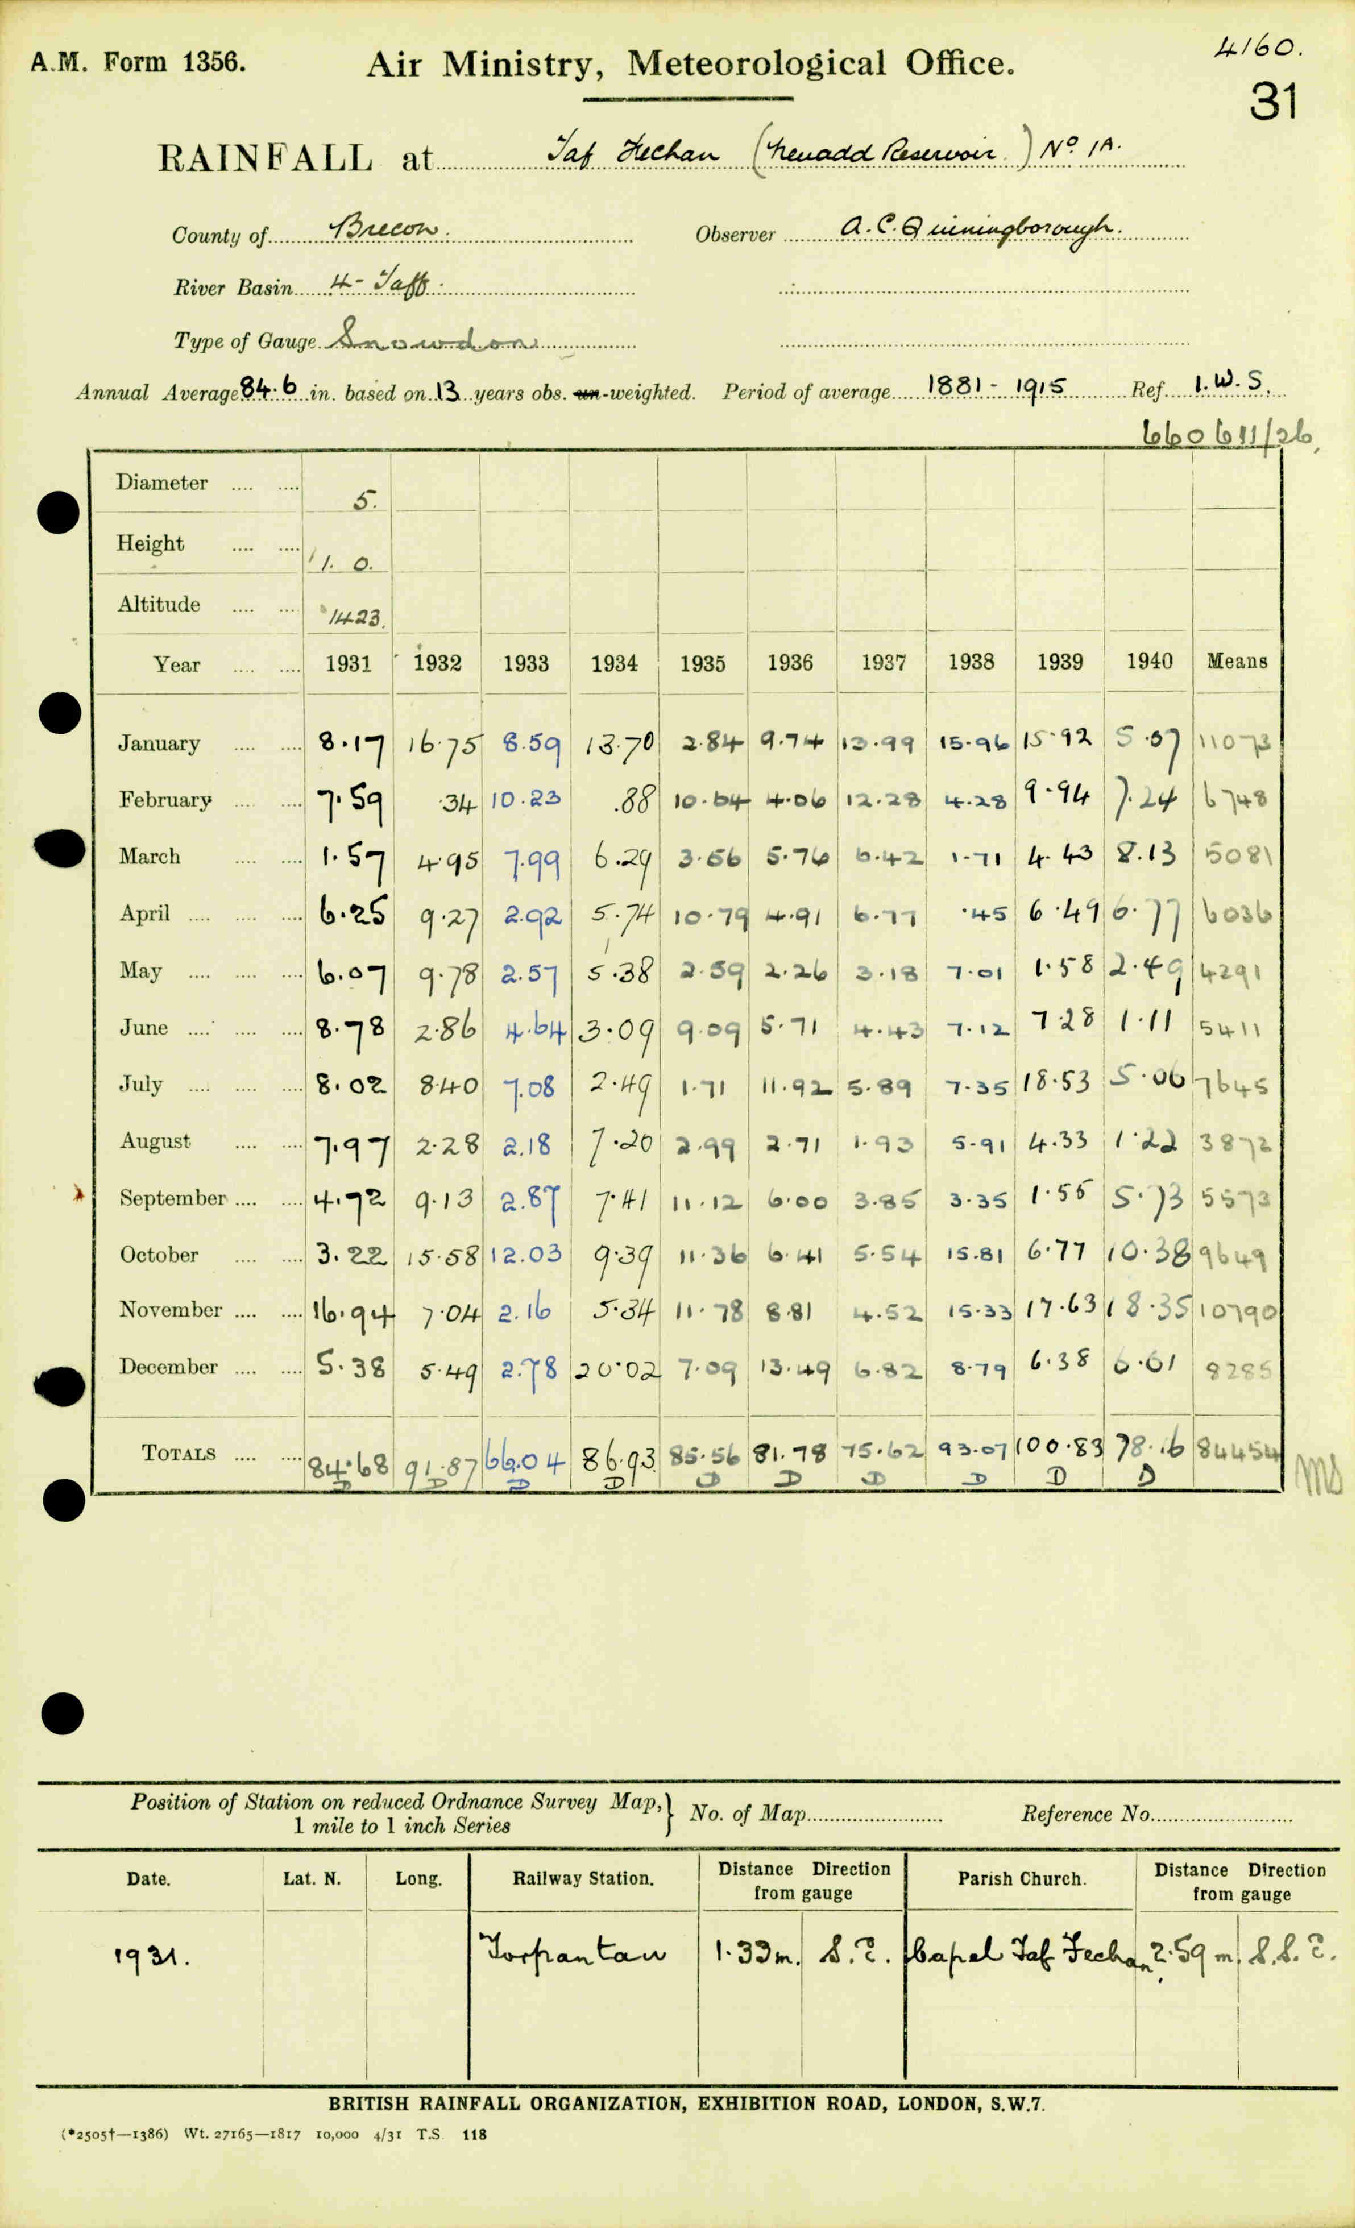 A.M. Form 1356.
Air Ministry, Meteorological Office.
4160.
31
RAINFALL at Taf Fechan (Neuadd Reservoir) No 1A.
County of Brecon. Observer A. C. Quiningborough.
River Basin 4 - Taff.
Type of Gauge Snowdon
Annual Average 84.6 in. based on 13 years obs. un-weighted. Period of average 1881 - 1915 Ref. I.W.S.
660611/26.
Diameter .... .... 5.
Height .... .... 1. 0.
Altitude .... .... 1423.
Year .... .... 1931 1932 1933 1934 1935 1936 1937 1938 1939 1940 Means
January .... .... 8.17 16.75 8.59 13.70 2.84 9.74 13.99 15.96 15.92 5.07 11073
February .... .... 7.59 .34 10.23 .88 10.64 4.06 12.28 4.28 9.94 7.24 6748
March .... .... 1.57 4.95 7.99 6.29 3.56 5.76 6.42 1.71 4.43 8.13 5081
April .... .... .... 6.25 9.27 2.92 5.74 10.79 4.91 6.77 .45 6.49 6.77 6036
May .... .... .... 6.07 9.78 2.57 5.38 2.59 2.26 3.18 7.01 1.58 2.49 4291
June .... .... .... 8.78 2.86 4.64 3.09 9.09 5.71 4.43 7.12 7.28 1.11 5411
July .... .... .... 8.02 8.40 7.08 2.49 1.71 11.92 5.89 7.35 18.53 5.06 7645
August .... .... 7.97 2.28 2.18 7.20 2.99 2.71 1.93 5.91 4.33 1.22 3872
September .... .... 4.72 9.13 2.87 7.41 11.12 6.00 3.85 3.35 1.55 5.73 5573
October .... .... 3.22 15.58 12.03 9.39 11.36 6.41 5.54 15.81 6.77 10.38 9649
November .... .... 16.94 7.04 2.16 5.34 11.78 8.81 4.52 15.33 17.63 18.35 10790
December .... .... 5.38 5.49 2.78 20.02 7.09 13.49 6.82 8.79 6.38 6.61 8285
TOTALS .... .... 84.68 91.87 66.04 86.93 85.56 81.78 75.62 93.07 100.83 78.16 84454
D D D D D D D D D D
MS
Position of Station on reduced Ordnance Survey Map, } No. of Map Reference No.
1 mile to 1 inch Series
Date. Lat. N. Long. Railway Station. Distance Direction from gauge Parish Church. Distance Direction from gauge
1931. Torpantau 1.33m. S.E. Capel Taf Fechan 2.59 m. S.S.E.
BRITISH RAINFALL ORGANIZATION, EXHIBITION ROAD, LONDON, S.W.7.
(*2505†—1386) Wt. 27165—1817 10,000 4/31 T.S. 118